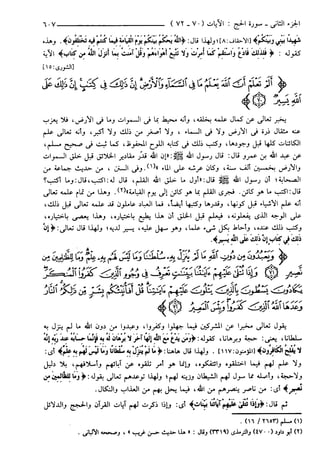 الجزء الثانى - سورة الحج : الآيات ( ٧٠ - ٧٢ ) ٦٠٧
شَهِيدًا بَيْنِي وَبَيْنَكُمْ﴾ [الأحقاف: ٨]؛ ولهذا قال: ﴿اللَّهُ يَحْكُمُ بَيْنَكُمْ يَوْمَ الْقِيَامَةِ فِيمَا كُنتُمْ فِيهِ تَخْتَلِفُونَ﴾. وهذه
كقوله : ﴿فَلِذَلِكَ فَادْعُ وَاسْتَقِمْ كَمَا أُمِرْتَ وَلَا تَتَّبِعْ أَهْوَاءَهُمْ وَقُلْ آمَنتُ بِمَا أَنزَلَ اللَّهُ مِن كِتَابٍ﴾ الآية
[الشورى: ١٥]
﴿أَلَمْ تَعْلَمْ أَنَّ اللَّهَ يَعْلَمُ مَا فِي السَّمَاءِ وَالْأَرْضِ إِنَّ ذَلِكَ فِي كِتَابٍ إِنَّ ذَلِكَ عَلَى
اللَّهِ يَسِيرٌ﴾
يخبر تعالى عن كمال علمه بخلقه، وأنه محيط بما فى السموات وما فى الأرض، فلا يعزب
عنه مثقال ذرة فى الأرض ولا فى السماء ، ولا أصغر من ذلك ولا أكبر، وأنه تعالى علم
الكائنات كلها قبل وجودها، وكتب ذلك فى كتابه اللوح المحفوظ، كما ثبت فى صحيح مسلم،
عن عبد الله بن عمرو قال: قال رسول الله ﷺ: «إن الله قدَّر مقادير الخلائق قبل خلق السموات
والأرض بخمسين ألف سنة، وكان عرشه على الماء»(١). وفى السنن ، من حديث جماعة من
الصحابة: أن رسول الله ﷺ قال: «أول ما خلق الله القلم، قال له: اكتب، قال: وما أكتب؟
قال: اكتب ما هو كائن. فجرى القلم بما هو كائن إلى يوم القيامة»(٢). وهذا من تمام علمه تعالى
أنه علم الأشياء قبل كونها، وقدرها وكتبها أيضاً، فما العباد عاملون قد علمه تعالى قبل ذلك،
على الوجه الذى يفعلونه، فيعلم قبل الخلق أن هذا يطيع باختياره، وهذا يعصى باختياره،
وكتب ذلك عنده، وأحاط بكل شىء علما، وهو سهل عليه، يسير لديه؛ ولهذا قال تعالى: ﴿إِنَّ
ذَلِكَ فِي كِتَابٍ إِنَّ ذَلِكَ عَلَى اللَّهِ يَسِيرٌ﴾.
﴿وَيَعْبُدُونَ مِن دُونِ اللَّهِ مَا لَمْ يُنَزِّلْ بِهِ سُلْطَانًا وَمَا لَيْسَ لَهُم بِهِ عِلْمٌ وَمَا لِلظَّالِمِينَ مِن
نَّصِيرٍ وَإِذَا تُتْلَى عَلَيْهِمْ آيَاتُنَا بَيِّنَاتٍ تَعْرِفُ فِي وُجُوهِ الَّذِينَ كَفَرُوا الْمُنكَرَ
يَكَادُونَ يَسْطُونَ بِالَّذِينَ يَتْلُونَ عَلَيْهِمْ آيَاتِنَا قُلْ أَفَأُنَبِّئُكُم بِشَرٍّ مِّن ذَلِكُمُ النَّارُ
وَعَدَهَا اللَّهُ الَّذِينَ كَفَرُوا وَبِئْسَ الْمَصِيرُ﴾
يقول تعالى مخبرا عن المشركين فيما جهلوا وكفروا، وعبدوا من دون الله ما لم ينزل به
سلطانا، يعنى: حجة وبرهانا، كقوله: ﴿وَمَن يَدْعُ مَعَ اللَّهِ إِلَهًا آخَرَ لَا بُرْهَانَ لَهُ بِهِ فَإِنَّمَا حِسَابُهُ عِندَ رَبِّهِ إِنَّهُ
لَا يُفْلِحُ الْكَافِرُونَ﴾ [المؤمنون: ١١٧] . ولهذا قال هاهنا: ﴿مَا لَمْ يُنَزِّلْ بِهِ سُلْطَانًا وَمَا لَيْسَ لَهُم بِهِ عِلْمٌ﴾ أى:
ولا علم لهم فيما اختلقوه وائتفكوه، وإنما هو أمر تلقوه عن آبائهم وأسلافهم، بلا دليل
ولا حجة، وأصله مما سول لهم الشيطان وزينه لهم؛ ولهذا توعدهم تعالى بقوله: ﴿وَمَا لِلظَّالِمِينَ مِن
نَّصِيرٍ﴾ أى: من ناصر ينصرهم من الله، فيما يحل بهم من العذاب والنكال.
ثم قال: ﴿وَإِذَا تُتْلَى عَلَيْهِمْ آيَاتُنَا بَيِّنَاتٍ﴾ أى: وإذا ذكرت لهم آيات القرآن والحجج والدلائل
(١) مسلم (٢٦٥٣ / ١٦) .
(٢) أبو داود (٤٧٠٠) والترمذى (٣٣١٩) وقال : «هذا حديث حسن غريب» ، وصححه الألبانى .